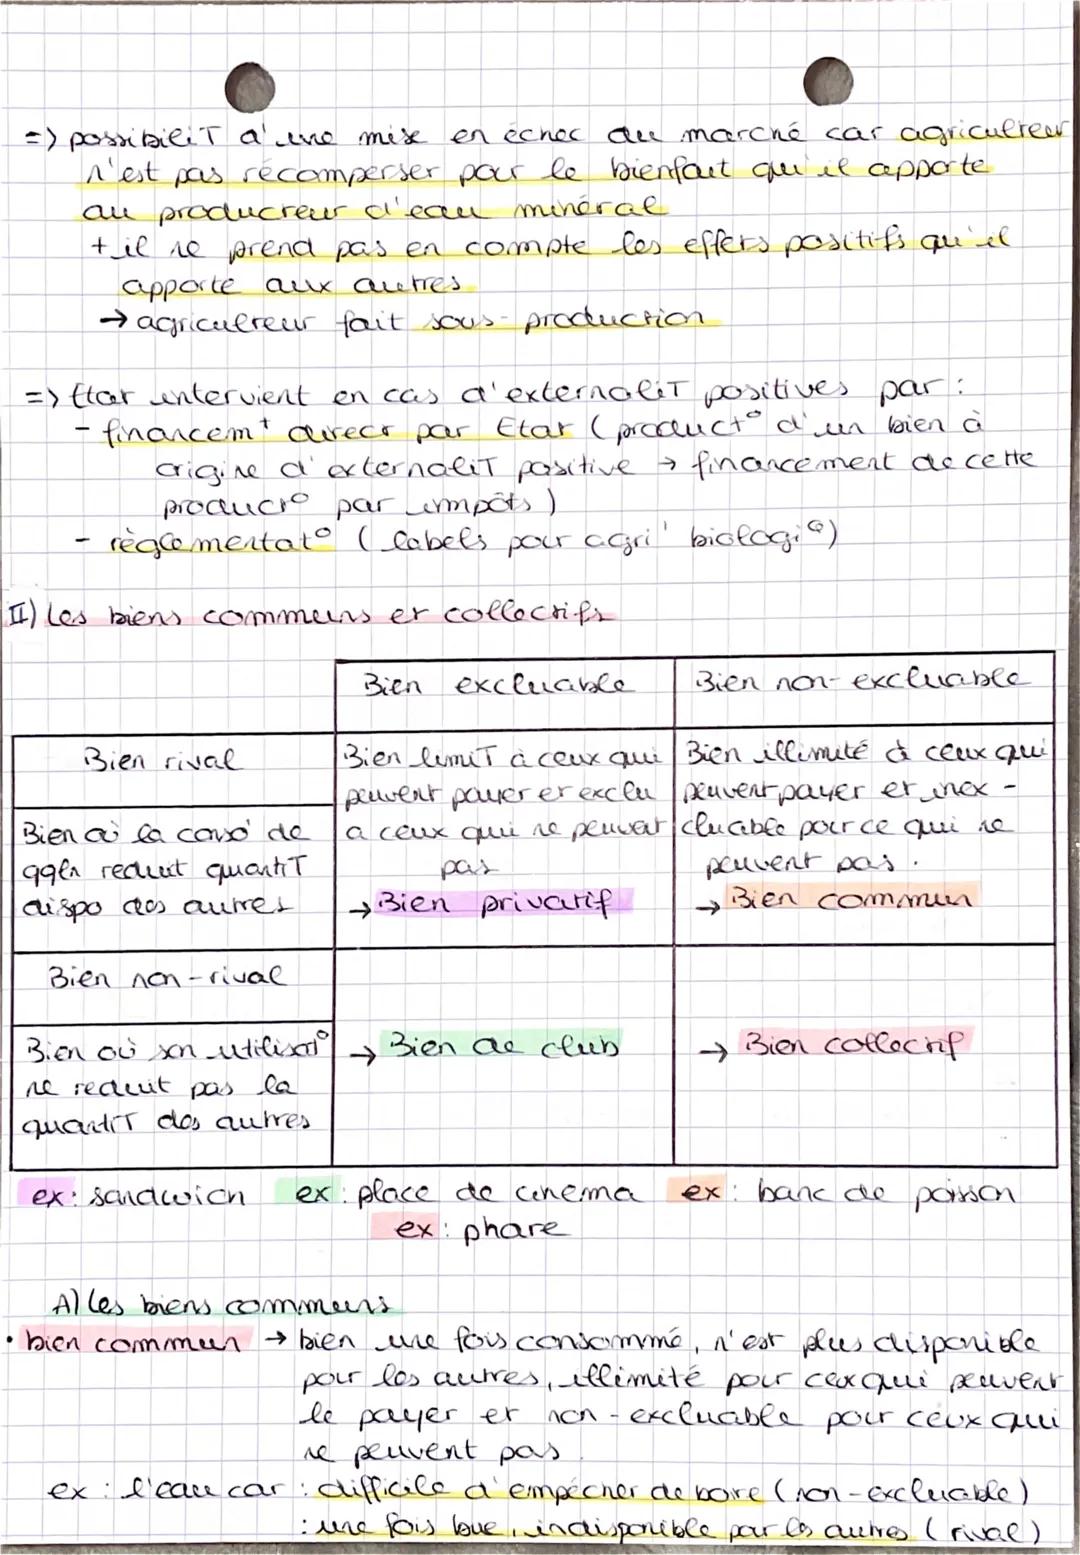 => possibiliT d'une mise en échec du marché car agriculteur
n'est pas récomperser pour le bienfait qu'il apporte
au producteur d'eau minéral
+ il ne prend pas en compte les effets positifs qu'il
apporte aux autres
→ agriculteur fait sous-production
=> Etat intervient en cas d'externaliT positives par :
- financem^t direct par Etat (product° d'un bien à
origine d'externaliT positive → financement de cette
product° par impôts)
- règlementat° (labels pour agri' biologi^Q)
II) Les biens communs et collectifs
Bien excluable
Bien non-excluable
Bien rival
Bien limiT à ceux qui
peuvent payer et exclu
a ceux qui ne peuvent
pas
→ Bien privatif
Bien illimité à ceux qui
peuvent payer et inex-
cluable pour ce qui ne
peuvent pas.
→ Bien commun
Bien où la conso' de
qqln reduit quantiT
dispo des autres
Bien non-rival
→ Bien de club
→ Bien collectif
Bien où son utilisat°
ne reduit pas la
quantiT des autres
ex: sandwich ex: place de cinema ex: banc de poisson
ex: phare
A) Les biens communs
• bien commun → bien une fois consommé, n'est plus disponible
pour les autres, illimité pour ceux qui peuvent
le payer et non-excluable pour ceux qui
ne peuvent pas
ex : l'eau car : difficile d'empêcher de boire (non-excluable)
: une fois bue, indisponible par les autres (rival)